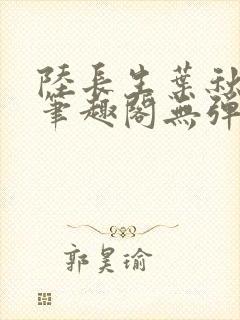 陸長生葉秋
筆趣閣無彈
郭昊瑜